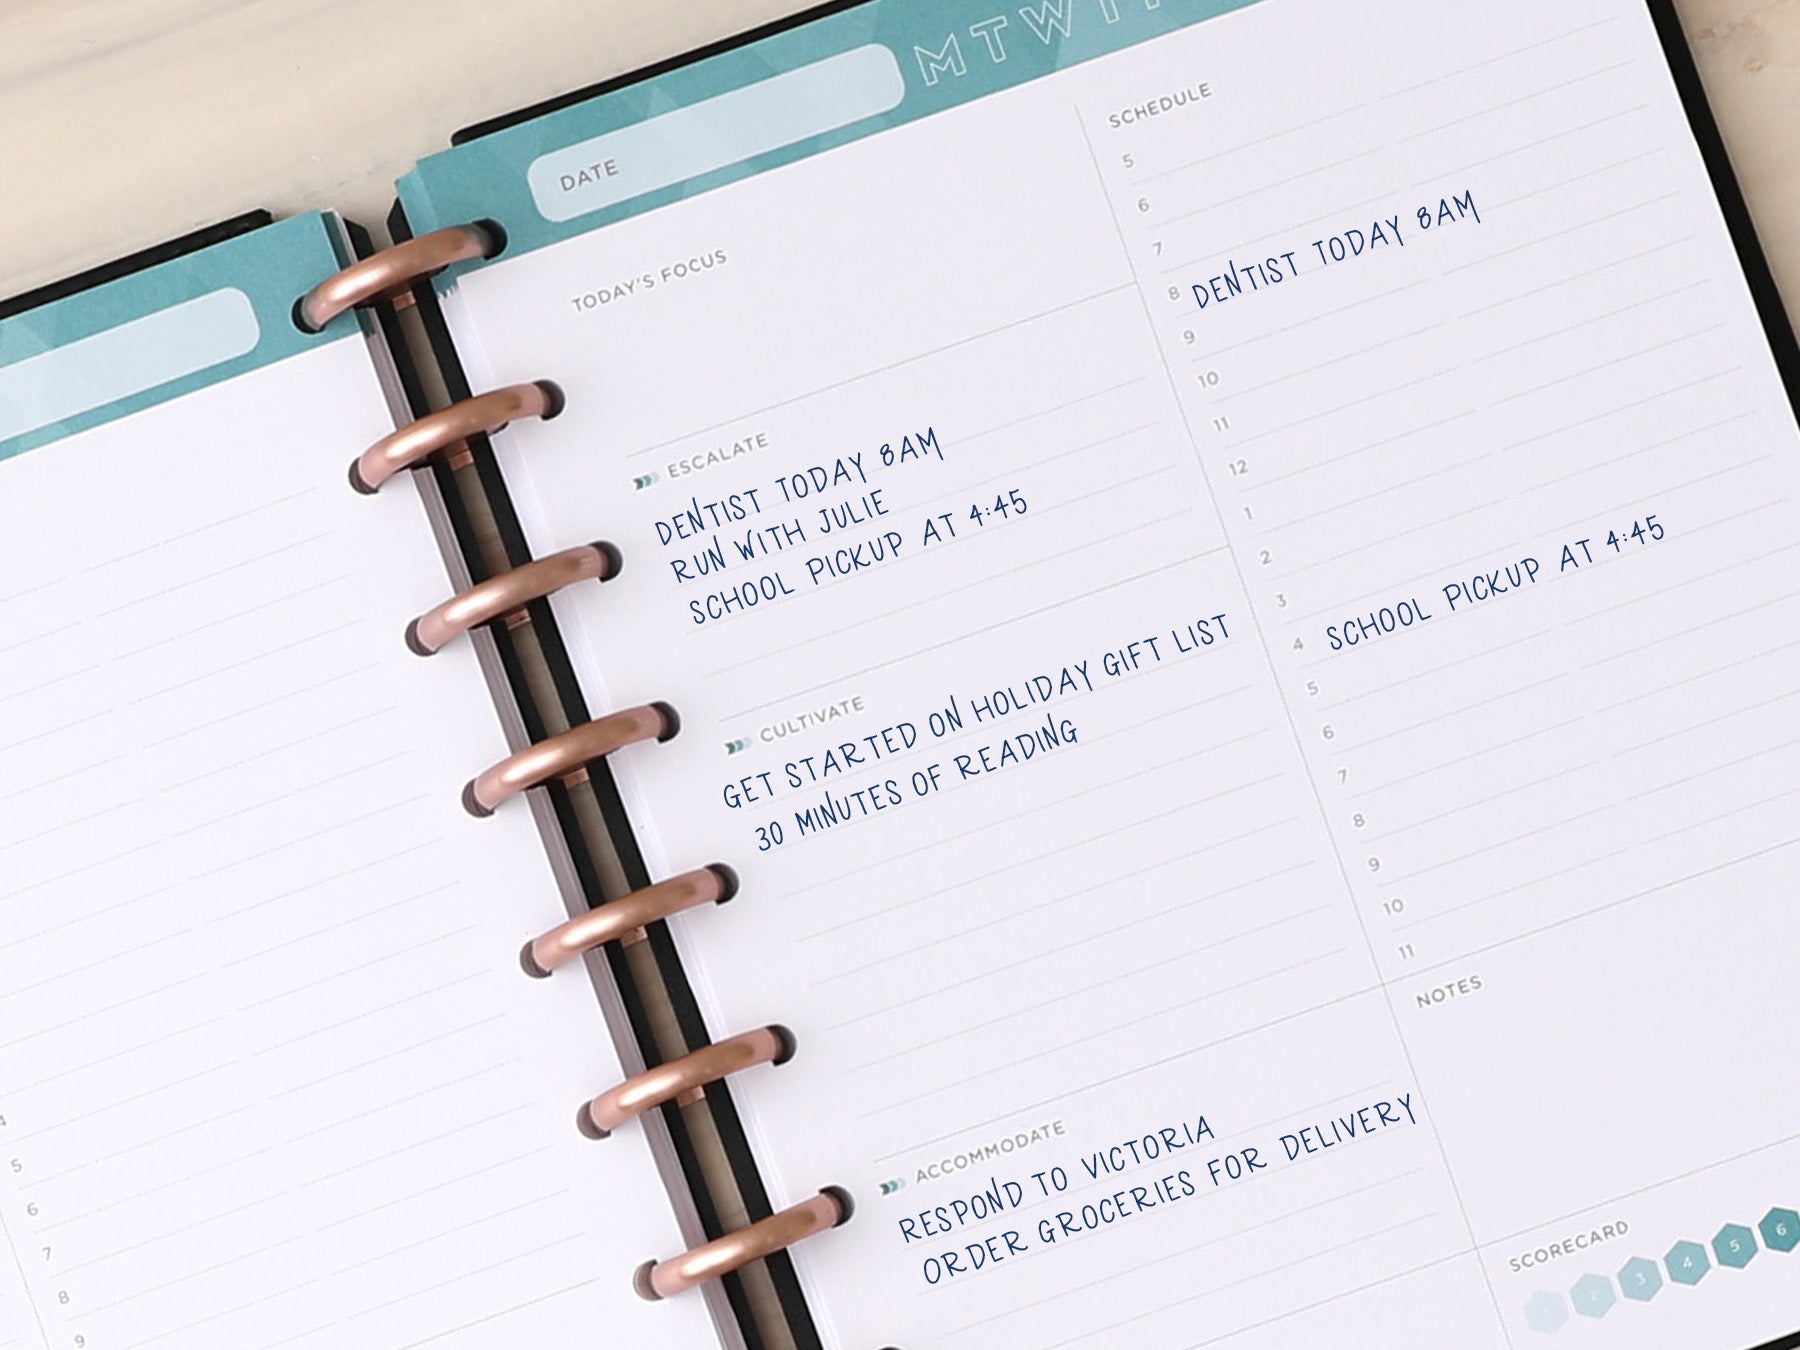 DATE
MTWTF
TODAY'S FOCUS
ESCALATE
DENTIST TODAY 8AM
RUN WITH JULIE
SCHOOL PICKUP AT 4:45
CULTIVATE
GET STARTED ON HOLIDAY GIFT LIST
30 MINUTES OF READING
ACCOMMODATE
RESPOND TO VICTORIA
ORDER GROCERIES FOR DELIVERY
SCHEDULE
5
6
7
8 DENTIST TODAY 8AM
9
10
11
12
1
2
3
4 SCHOOL PICKUP AT 4:45
5
6
7
8
9
10
11
NOTES
SCORECARD
1 2 3 4 5 6
4
5
6
7
8
9